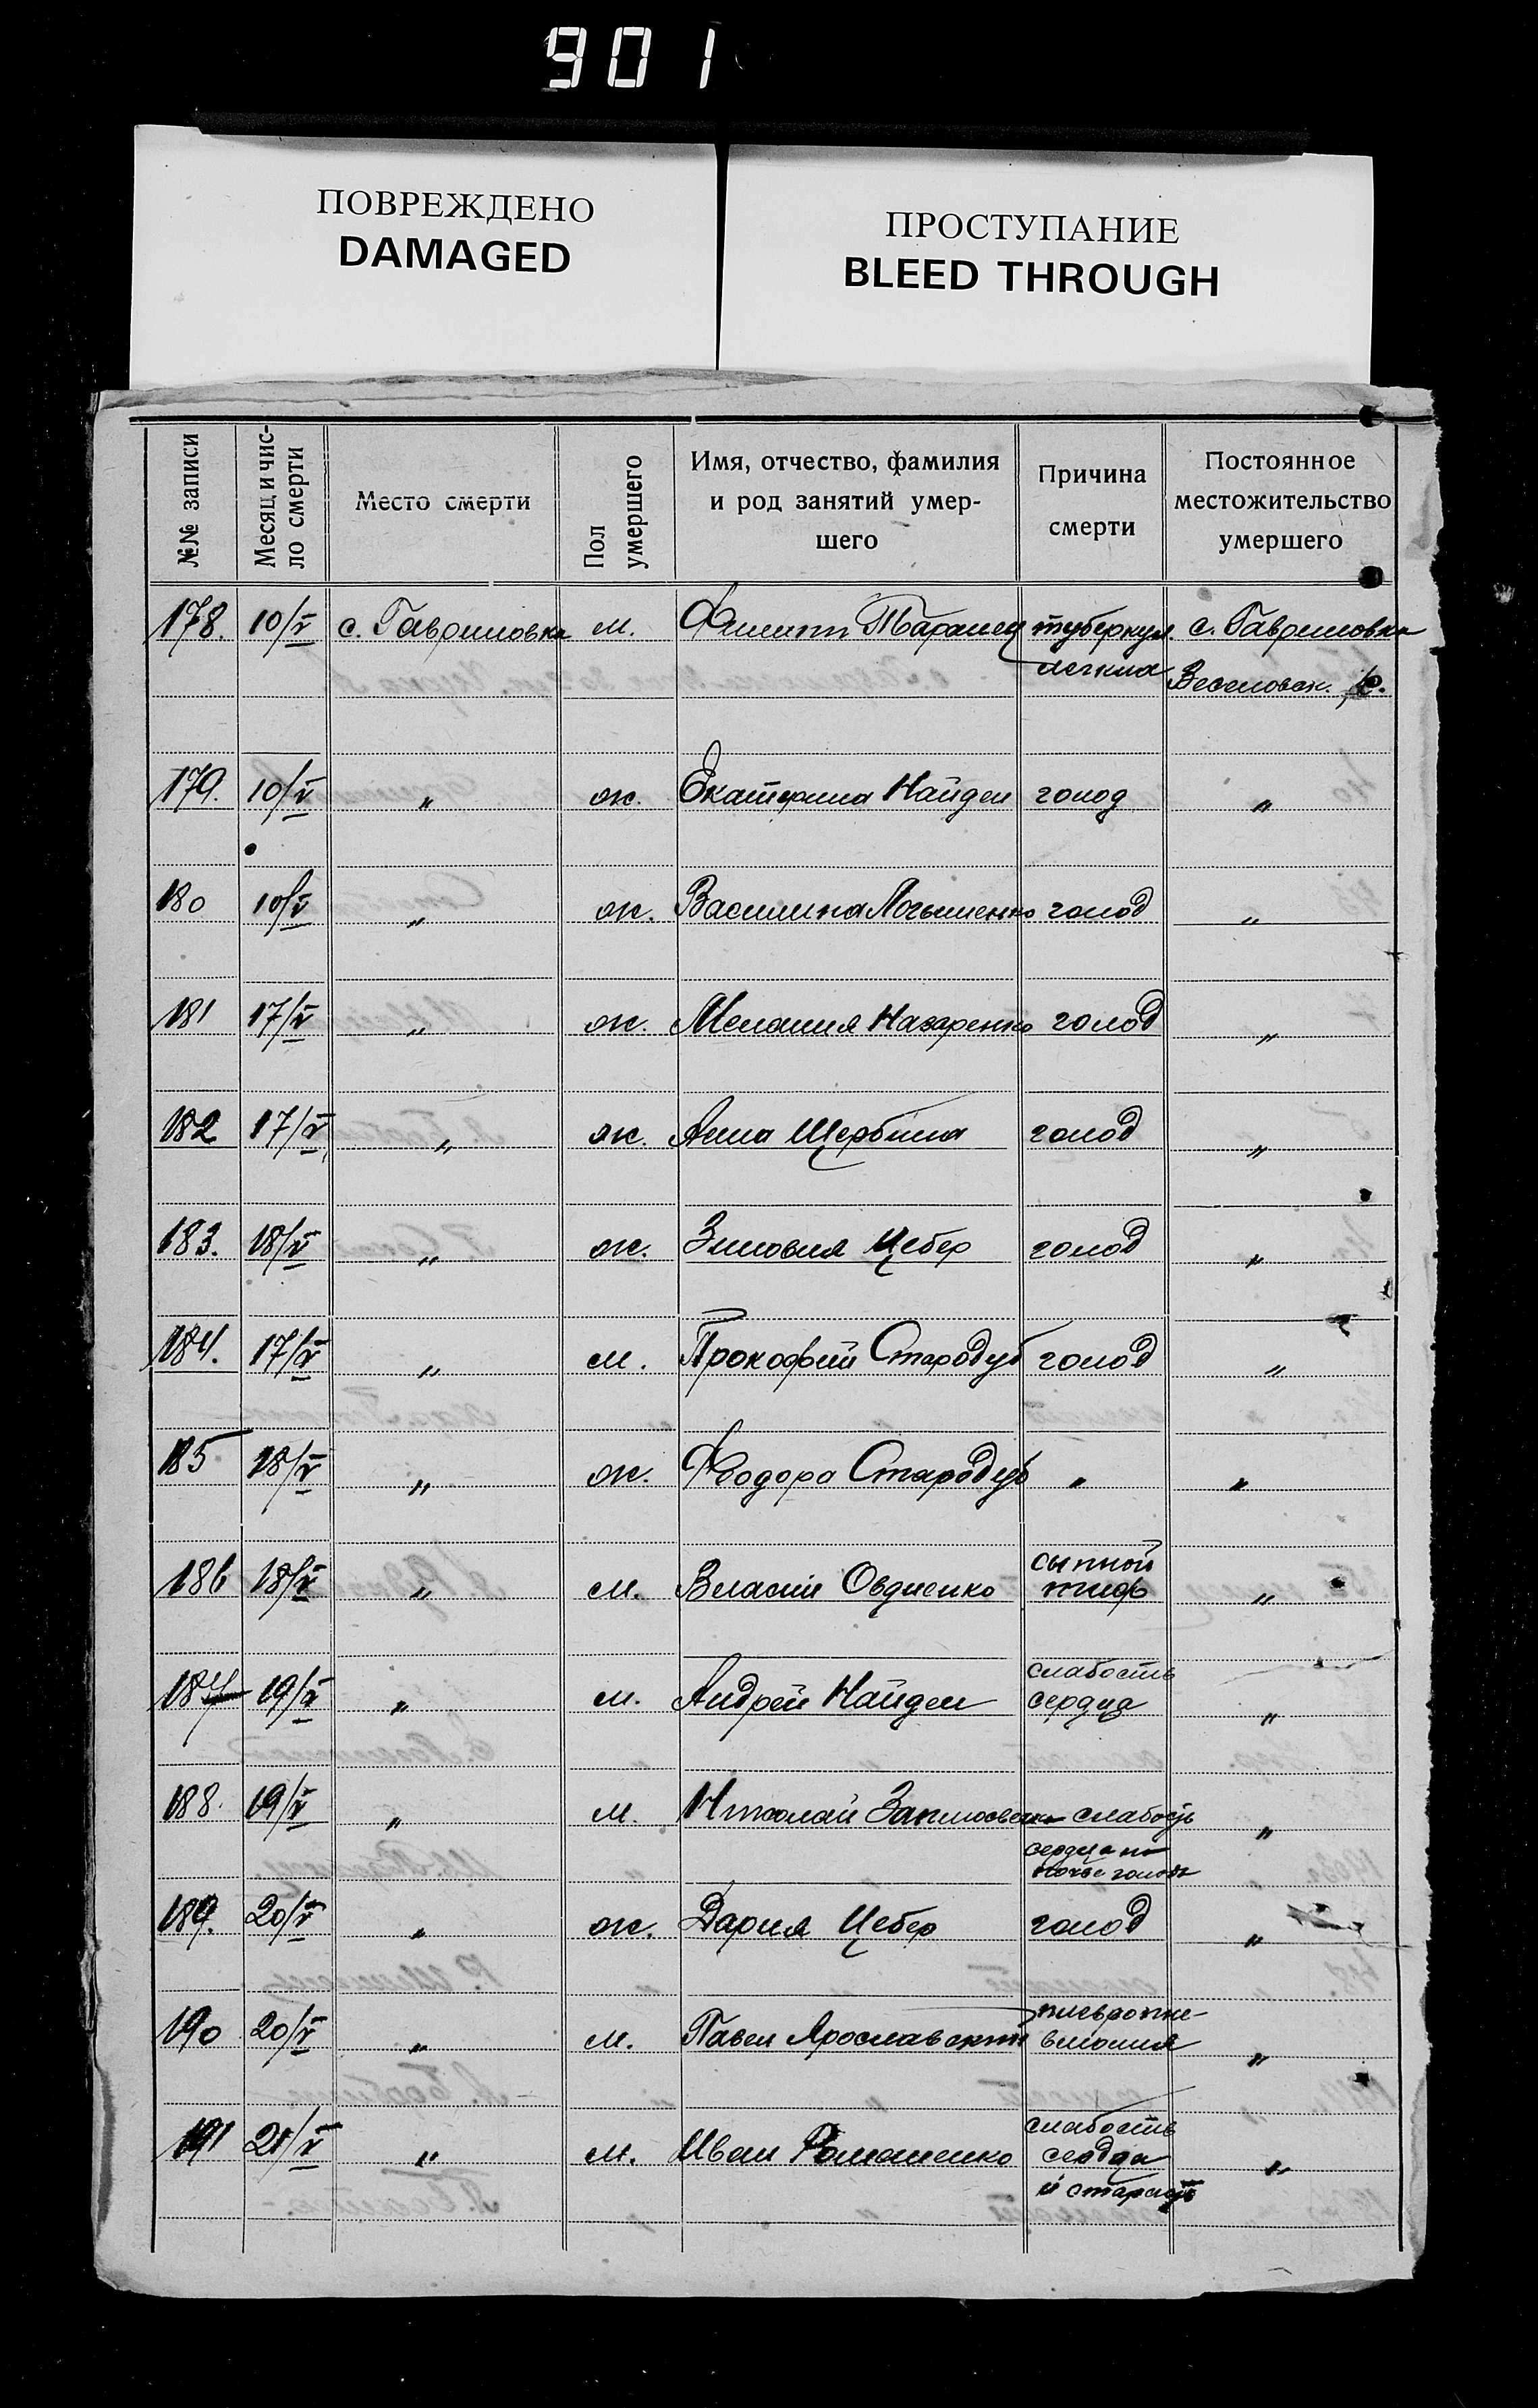 901
ПОВРЕЖДЕНО
DAMAGED
ПРОСТУПАНИЕ
BLEED THROUGH
№№ записи
Месяц и чис-
ло смерти
Место смерти
Пол
умершего
Имя, отчество, фамилия
и род занятий умер-
шего
Причина
смерти
Постоянное
местожительство
умершего
178. 10/V с. Гавриловка м. Филипп Таранец туберкул. с. Гавриловка
легких Веселовск.
179. 10/V " ж. Екатерина Найден голод "
180 10/V " ж. Василина голод "
181 17/V " ж. Мелания Назаренко голод "
182 17/V " ж. Анна Щербина голод "
183. 18/V " ж. Зиновия Цебер голод "
184. 17/V " м. Прокофий Стародуб голод "
185 18/V " ж. Феодора Стародуб " "
186 18/V " м. Власий Овдиенко сыпной
тиф "
187 19/V " м. Андрей Найден слабость
сердца "
188. 19/V " м. Николай слабость "
сердца на
почве голода
189. 20/V " ж. Дария Цебер голод "
190 20/V " м. Павел Ярославский плевропне-
вмония "
191 21/V " м. Иван Романенко слабость
сердца "
и старость